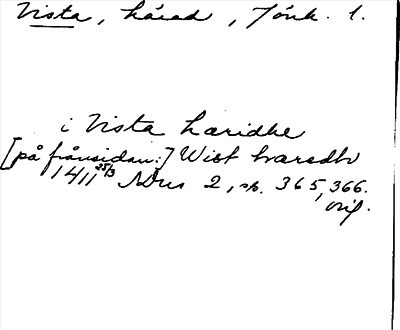 Vista, härad, Jönk. l.
i Vista hæridhe
[på frånsidan:] Wist hæredh
1411 25/3 SDns 2, sk. 365, 366.
orig.